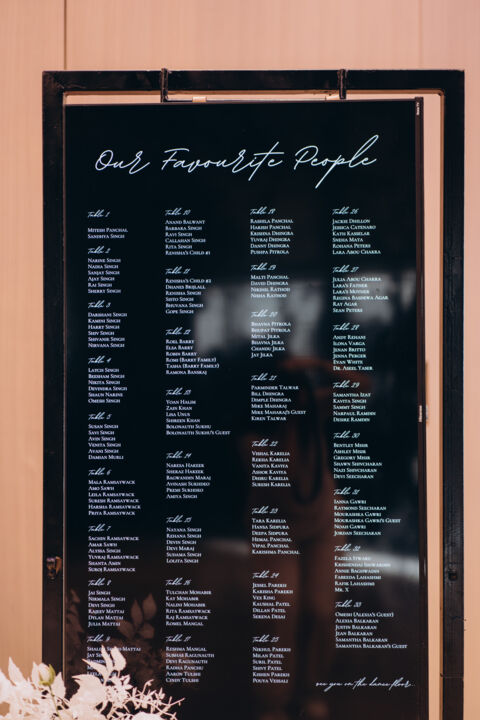 Our Favourite People
Table 1
Mitesh Panchal
Sandhya Singh
Table 2
Narine Singh
Nadia Singh
Sanjay Singh
Ajay Singh
Rai Singh
Sherry Singh
Table 3
Darshani Singh
Kamini Singh
Harry Singh
Shiv Singh
Shivanie Singh
Nirvana Singh
Table 4
Latch Singh
Bresham Singh
Nikita Singh
Devindra Singh
Shaun Narine
Omesh Singh
Table 5
Susan Singh
Savi Singh
Avin Singh
Venita Singh
Avani Singh
Damian Murli
Table 6
Mala Ramsaywack
Amo Sawh
Leila Ramsaywack
Suresh Ramsaywack
Harsha Ramsaywack
Priya Ramsaywack
Table 7
Sachin Ramsaywack
Amar Sawh
Alysha Singh
Yuvraj Ramsaywack
Shanta Amin
Suroj Ramsaywack
Table 8
Jai Singh
Nirmala Singh
Devi Singh
Rajiev Mattai
Dylan Mattai
Julia Mattai
Table 9
Mattai
Jay
Table 10
Anand Balwant
Barbara Singh
Ravi Singh
Callahan Singh
Rita Singh
Renisha's Child #1
Table 11
Renisha's Child #2
Dhanes Brijlall
Renisha Singh
Sisto Singh
Bhuvana Singh
Gope Singh
Table 12
Roel Barry
Elsa Barry
Robin Barry
Romi (Barry Family)
Taisha (Barry Family)
Ramona Banskaj
Table 13
Yoan Halim
Zain Khan
Lisa Unus
Shireen Khan
Bolonauth Sukhu
Bolonauth Sukhu's Guest
Table 14
Narissa Hakeer
Shiraz Hakeer
Bagwandin Maraj
Avinash Sukhdeo
Premi Sukhdeo
Amiya Singh
Table 15
Nayana Singh
Rehana Singh
Devin Singh
Devi Maraj
Sudama Singh
Lolita Singh
Table 16
Tulcham Mohabir
Kay Mohabir
Nalini Mohabir
Rita Ramsaywack
Raj Ramsaywack
Romel Mangal
Table 17
Reshma Mangal
Subhas Ragunauth
Devi Ragunauth
Radha Panchu
Aaron Tulshi
Cindy Tulshi
Table 18
Rashila Panchal
Harish Panchal
Krishna Dhengra
Yuvraj Dhengra
Danny Dhengra
Pushpa Pitrola
Table 19
Malti Panchal
David Dhengra
Nikhil Rathod
Nisha Rathod
Table 20
Bhavna Pitrola
Bhupat Pitrola
Mital Jilka
Bhavna Jilka
Chandu Jilka
Jay Jilka
Table 21
Parminder Talwar
Bill Dhengra
Dimple Dhengra
Mike Maharaj
Mike Maharaj's Guest
Kiren Talwar
Table 22
Vishal Karelia
Rekha Karelia
Vanita Kaviya
Ashok Kaviya
Dishu Karelia
Suresh Karelia
Table 23
Tara Karelia
Hansa Sedpura
Deepa Sedpura
Hemal Panchal
Vipal Panchal
Karishma Panchal
Table 24
Jessel Parekh
Karisha Parekh
Vee King
Kaushal Patel
Dillan Patel
Serena Desai
Table 25
Nikhul Parekh
Milan Patel
Sunil Patel
Shivi Patel
Kishen Parekh
Pouya Vessali
Table 26
Jackie Dhillon
Jessica Catenaro
Kath Kasselar
Sneha Maya
Rohana Peters
Lara Abou Chakra
Table 27
Julia Abou Chakra
Lara's Father
Lara's Mother
Regina Basdewa Agar
Ray Agar
Sean Peters
Table 28
Andy Rehani
Ilona Varga
Jenan Britto
Jenna Perger
Evan White
Dr. Aseel Tamir
Table 29
Samantha Izat
Kavita Singh
Sammy Singh
Narpaul Ramdin
Desire Ramdin
Table 30
Bentley Misir
Ashley Misir
Gregory Misir
Shawn Sewcharan
Nazi Sewcharan
Devi Seecharan
Table 31
Ianna Gawri
Raymond Seecharan
Mourashka Gawri
Mourashka Gawri's Guest
Noah Gawri
Jordan Seecharan
Table 32
Fazela Etwaru
Krishendai Siewarden
Annie Bagwadin
Fareeda Lahashmi
Rafik Lahashmi
Mr. X
Table 33
Omesh (Alesha's Guest)
Alesha Balkaran
Justin Balkaran
Jean Balkaran
Samantha Balkaran
Samantha Balkaran's Guest
see you on the dance floor..